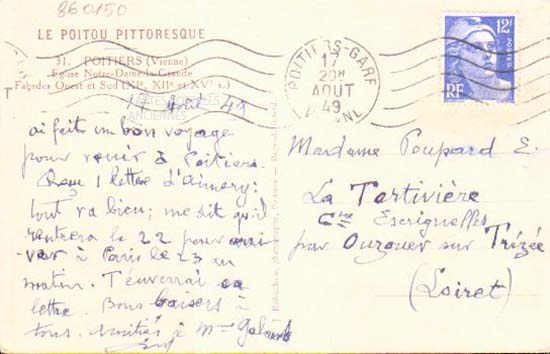 860150
LE POITOU PITTORESQUE
31. POITIERS (Vienne)
Eglise Notre-Dame-la-Grande
Façades Ouest et Sud (XIe, XIIe et XVe s.)
CARTES POSTALES
ANCIENNES
17 Août 49
ai fait un bon voyage
pour venir à Poitiers.
Reçu 1 lettre d'Aimery:
tout va bien; me dit qu'il
rentrera le 22 pour arri-
ver à Paris le 23 au
matin. T'enverrai sa
lettre. Bons baisers à
tous. Amitiés à Mme
POITIERS-GARE
17
20H
AOUT
49
12F
POSTES
RF
Madame Poupard E.
La Tartivière
Cne Escrignelles
par Ouzouer sur Trézée
(Loiret)